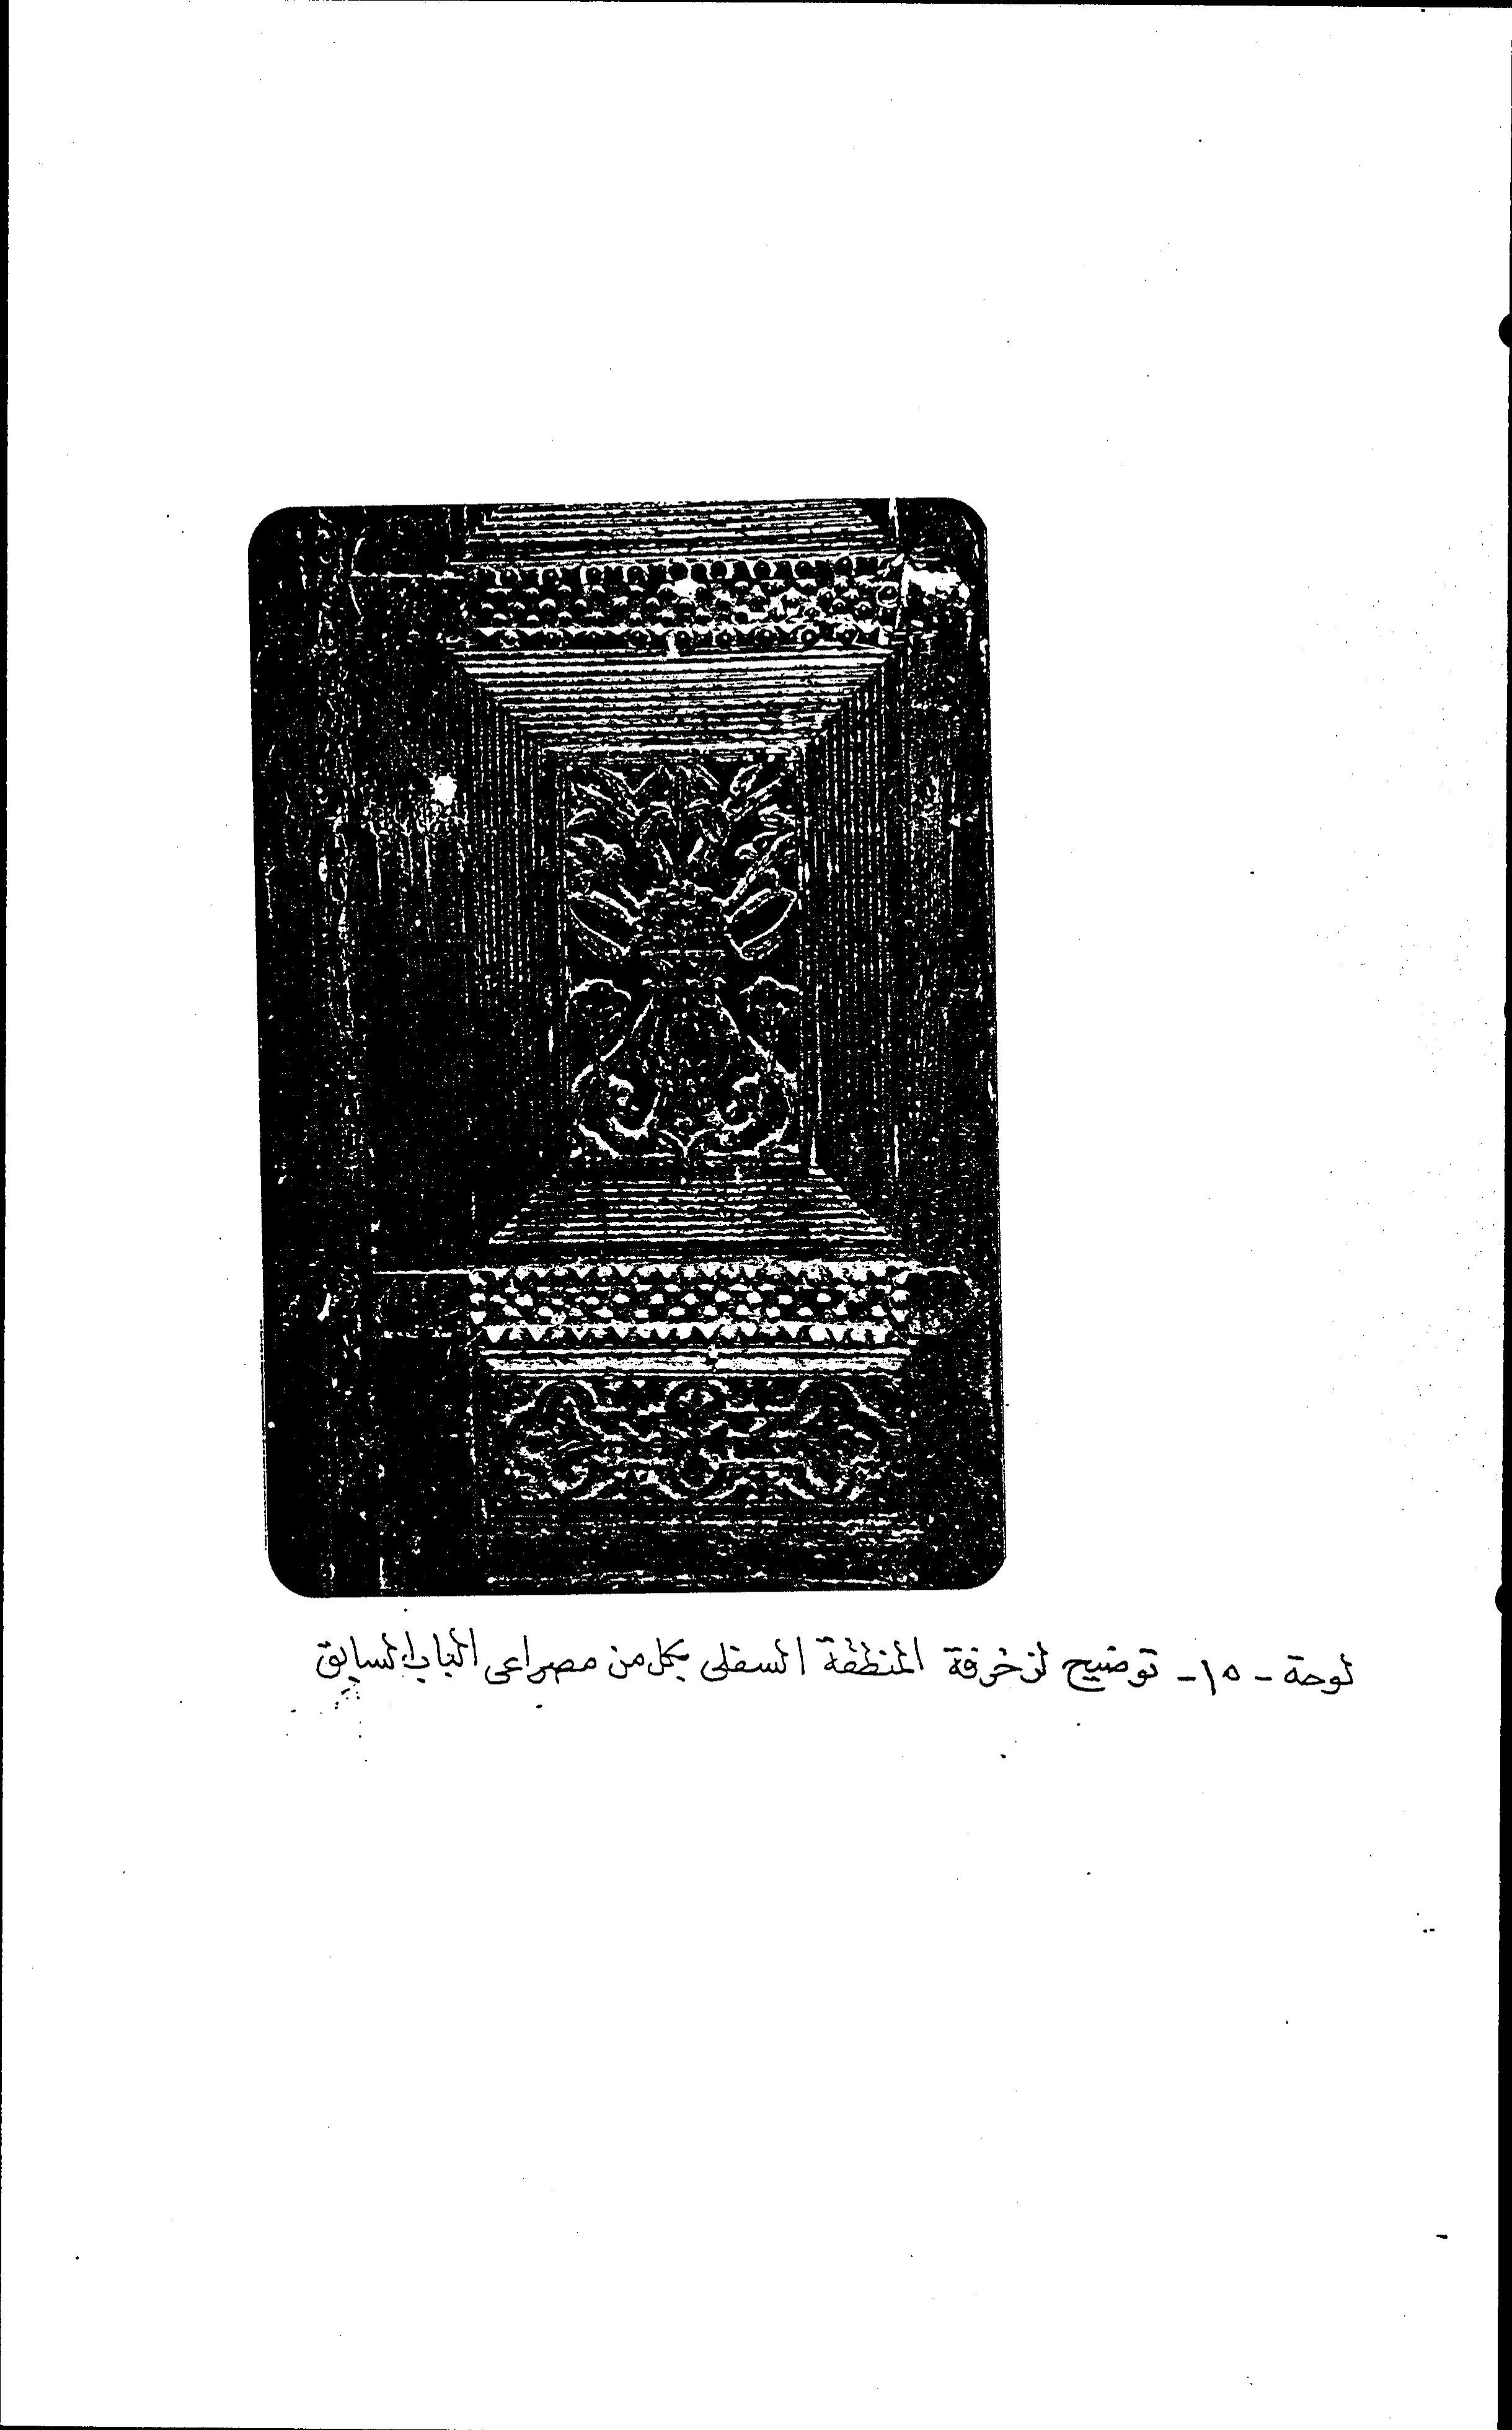 لوحة - ١٥ - توضيح لزخرفة المنطقة السفلى بكل من مصراعى الباب السابق